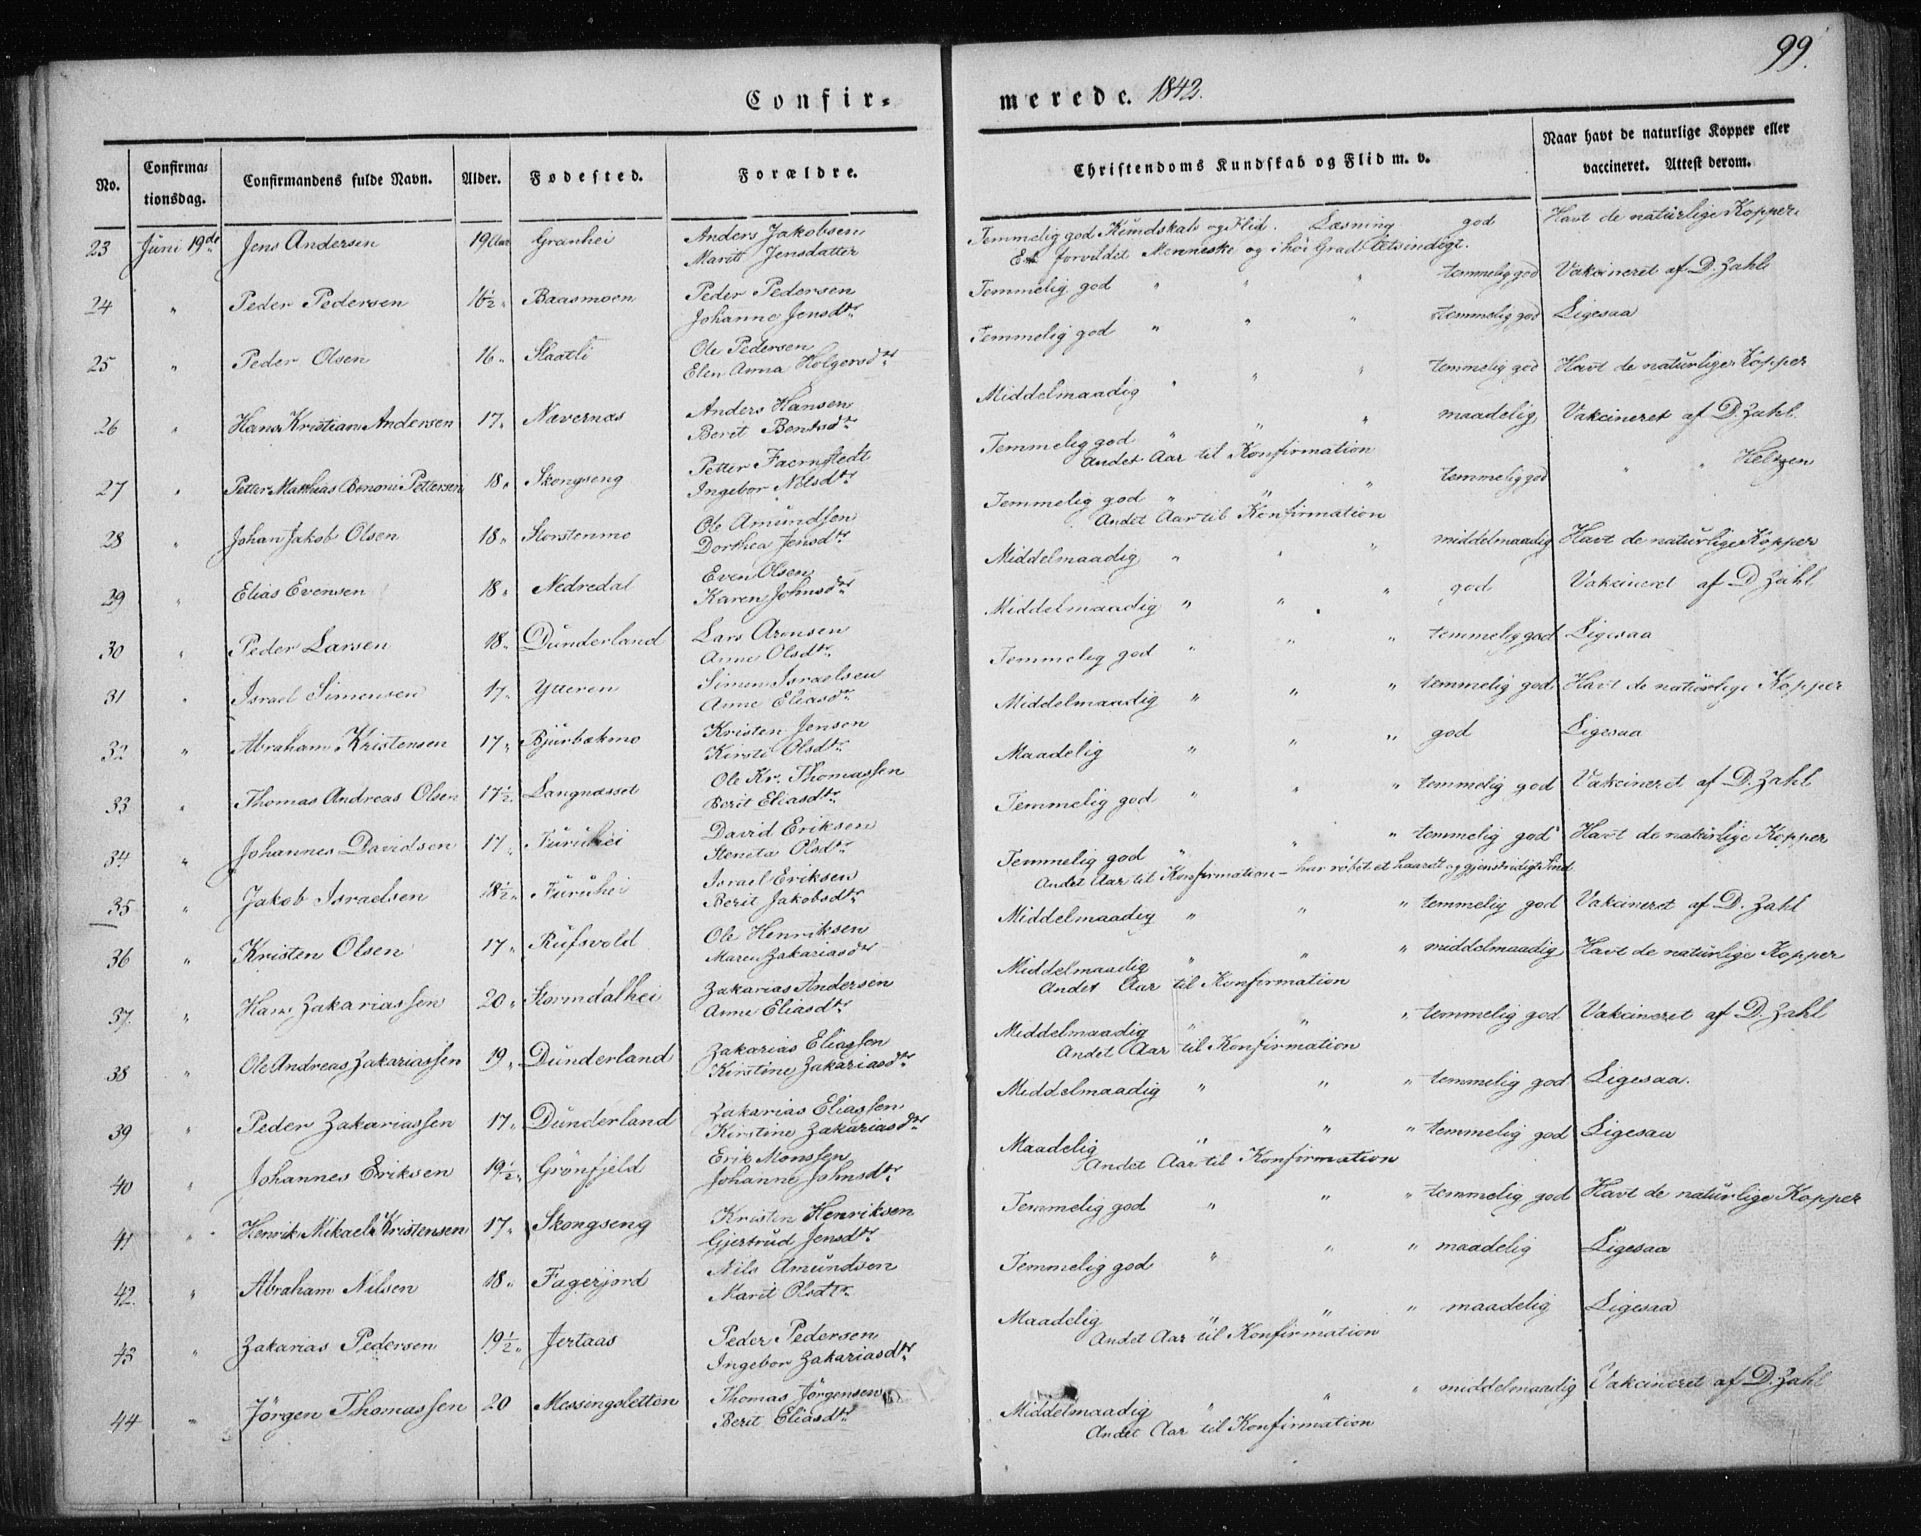 99.
Confir- merede. 1842.
No. Confirma- tionsdag. Confirmandens fulde Navn. Alder. Fødested. Forældre. Christendoms Kundskab og Flid m. v. Naar havt de naturlige Kopper eller vaccineret. Attest derom.
23 Juni 19de Jens Andersen 19 Aar Granhei Anders Jakobsen Temmelig god Kundskab og Flid. Læsning god Havt de naturlige Kopper
Marit Jensdatter Et forvildet Menneske og i høi Grad letsindigt.
24 " Peder Pedersen 16½ " Baasmoen Peder Pedersen Temmelig god " " " temmelig god Vakcineret af D. Zahl
Johanne Jensdtr
25 " Peder Olsen 16 " Staatli Ole Pedersen Temmelig god " " " temmelig god Ligesaa
Elen Anna Holgersdtr
26 " Hans Kristian Andersen 17 " Nævernæs Anders Hansen Middelmaadig " " " temmelig god Havt de naturlige Kopper
Berit Bentsdtr
27 " Petter Mathias Benoni Pettersen 18 " Skongseng Petter Færnstedt Temmelig god " " " maadelig Vakcineret af D. Zahl
Ingebor Nilsdtr Andet Aar til Konfirmation
28 " Johan Jakob Olsen 18 " Storstenmo Ole Amundsen Temmelig god " " " temmelig god " " Heltzen
Dorthea Jensdtr Andet Aar til Konfirmation
29 " Elias Evensen 18 " Nedredal Even Olsen Middelmaadig " " " middelmaadig Havt de naturlige Kopper
Karen Johnsdtr
30 " Peder Larsen 18 " Dunderland Lars Arensen Middelmaadig " " " god Vakcineret af D Zahl
Anne Olsdtr
31 " Israel Simensen 17 " Ytteren Simen Israelsen Temmelig god " " " temmelig god Ligesaa
Anne Eliasdtr
32 " Abraham Kristensen 17 " Bjurbækmo Kristen Jensen Middelmaadig " " " temmelig god Havt de naturlige Kopper
Kirsti Olsdtr
33 " Thomas Andreas Olsen 17½ " Langnæsset Ole Kr. Thomassen Maadelig " " " god Ligesaa
Berit Eliasdtr
34 " Johannes Davidsen 17 " Furuhei David Eriksen Temmelig god " " " temmelig god Vakcineret af D. Zahl
Steneta Olsdtr
35 " Jakob Israelsen 18½ " Furuhei Israel Eriksen Temmelig god " " " temmelig god Havt de naturlige Kopper
Berit Jakobsdtr Andet Aar til Konfirmation - har røbet et haardt og gjenstridigt Sind
36 " Kristen Olsen 17 " Rufsvold Ole Henriksen Middelmaadig " " " temmelig god Vakcineret af D. Zahl
Maren Zakariasdtr
37. " Hans Zakariassen 20 " Stormdalhei Zakarias Andersen Middelmaadig " " " middelmaadig Havt de naturlige Kopper
Anne Eliasdtr Andet Aar til Konfirmation
38 " Ole Andreas Zakariassen 19 " Dunderland Zakarias Eliassen Middelmaadig " " " temmelig god Vakcineret af D. Zahl
Kirstine Zakariasdtr Andet Aar til Konfirmation
39 " Peder Zakariassen 17 " Dunderland Zakarias Eliassen Middelmaadig " " " temmelig god Ligesaa.
Kirstine Zakariasdtr
40 " Johannes Eriksen 19½ " Grönfjeld Erik Monssen Maadelig " " " temmelig god Ligesaa
Johanne Johnsdtr Andet Aar til Konfirmation
41 " Henrik Mikael Kristensen 17 " Skongseng Kristen Henriksen Temmelig god " " " temmelig god Havt de naturlige Kopper
Gjertrud Jensdtr
42. " Abraham Nilsen 18 " Fagerjord Nils Amundsen Temmelig god " " " maadelig Ligesaa
Marit Olsdtr
43 " Zakarias Pedersen 19½ " Jertaas Peder Pedersen Maadelig " " " maadelig Ligesaa
Ingebor Zakariasdtr Andet Aar til Konfirmation
44 " Jörgen Thomassen 20 Messingsletten Thomas Jörgensen Middelmaadig " " " middelmaadig Vakcineret af D. Zahl
Berit Eliasdtr Andet Aar til Konfirmation